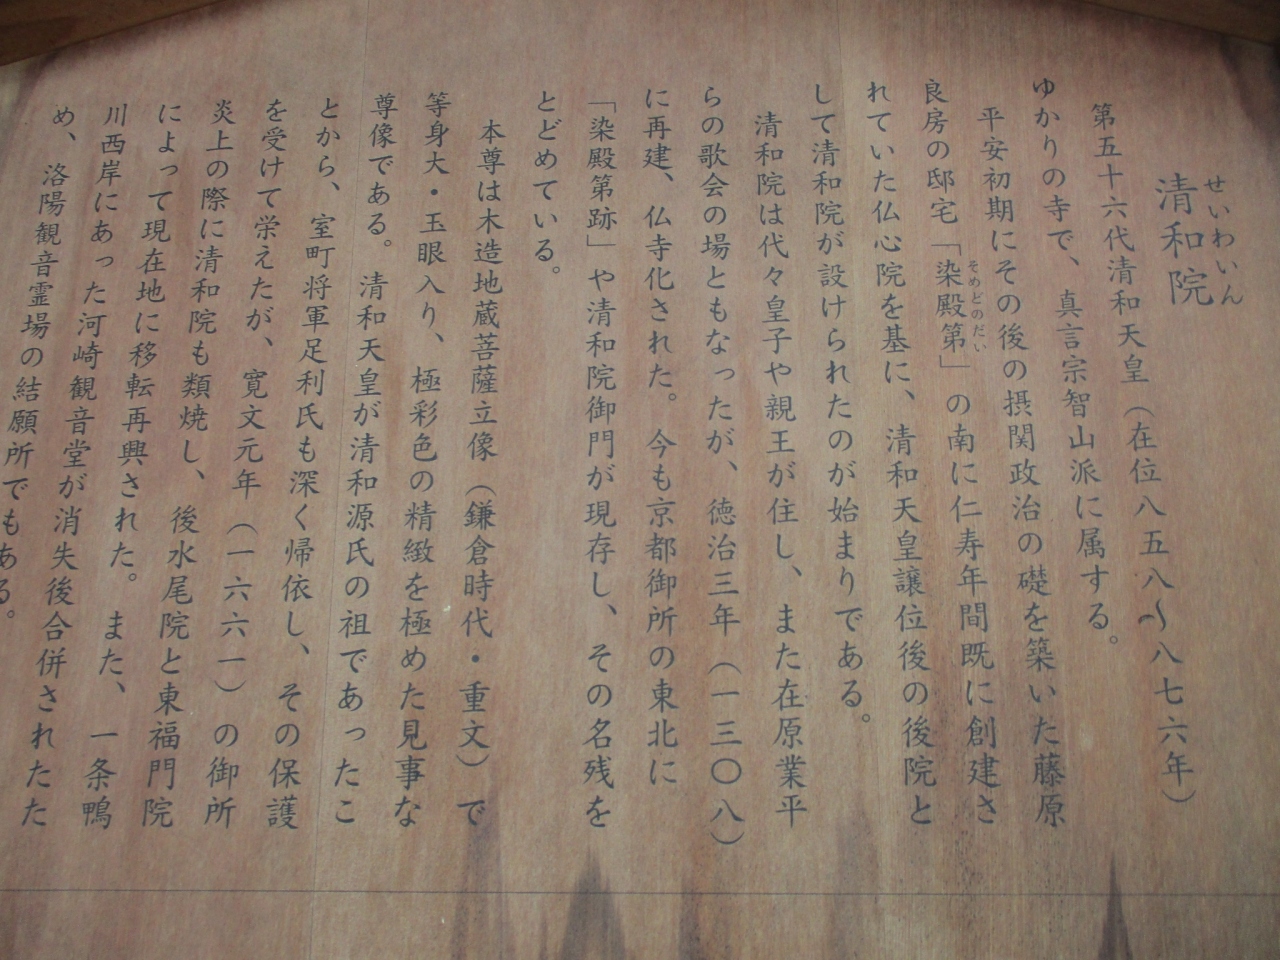 せいわいん
清和院
第五十六代清和天皇（在位八五八〜八七六年）
ゆかりの寺で、真言宗智山派に属する。
平安初期にその後の摂関政治の礎を築いた藤原
良房の邸宅「染殿第」の南に仁寿年間既に創建さ
そめどのだい
れていた仏心院を基に、清和天皇譲位後の後院と
して清和院が設けられたのが始まりである。
清和院は代々皇子や親王が住し、また在原業平
らの歌会の場ともなったが、徳治三年（一三〇八）
に再建、仏寺化された。今も京都御所の東北に
「染殿第跡」や清和院御門が現存し、その名残を
とどめている。
本尊は木造地蔵菩薩立像（鎌倉時代・重文）で
等身大・玉眼入り、極彩色の精緻を極めた見事な
尊像である。清和天皇が清和源氏の祖であったこ
とから、室町将軍足利氏も深く帰依し、その保護
を受けて栄えたが、寛文元年（一六六一）の御所
炎上の際に清和院も類焼し、後水尾院と東福門院
によって現在地に移転再興された。また、一条鴨
川西岸にあった河崎観音堂が消失後合併されたた
め、洛陽観音霊場の結願所でもある。